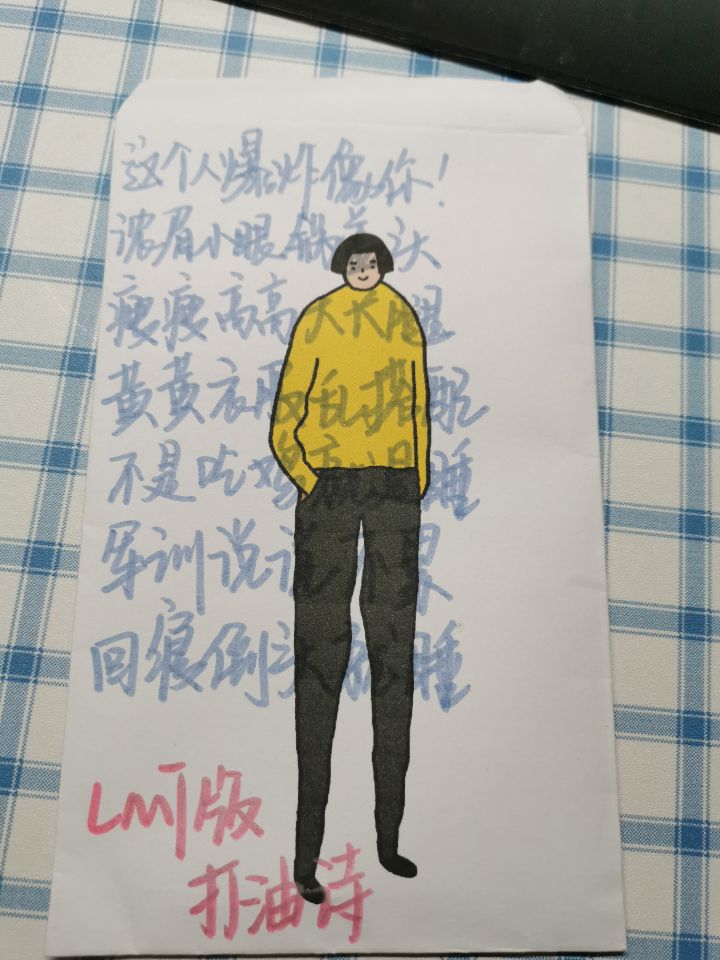 这个人爆炸像你!
浓眉小眼锅盖头
瘦瘦高高大长腿
黄黄衣服乱搭配
不是吃鸡就是睡
军训说说不累
回寝倒头就睡
LMT版
打油诗